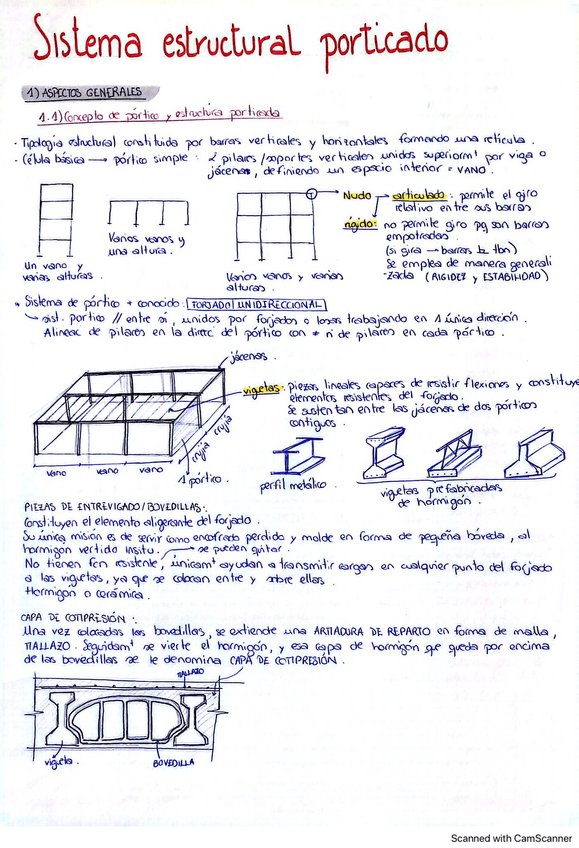 Sistema estructural porticado
1) ASPECTOS GENERALES
1.1) Concepto de pórtico y estructura porticada
· Tipología estructural constituida por barras verticales y horizontales formando una retícula.
· Célula básica → pórtico simple: 2 pilares/soportes verticales unidos superiormt por viga o
jácenas, definiendo un espacio interior = VANO.
Un vano y
varias alturas.
Varios vanos y
una altura.
Varios vanos y varias
alturas.
Nudo → articulado: permite el giro
relativo entre sus barras
rígido: no permite giro pq son barras
empotradas.
(si gira → barras tbn)
Se emplea de manera generali
-zada (RIGIDEZ y ESTABILIDAD)
* Sistema de pórtico + conocido: FORJADO UNIDIRECCIONAL
↳ sist. portico // entre sí, unidos por forjados o losas trabajando en 1 única dirección.
Alineac de pilares en la direcc del pórtico con ≠ nº de pilares en cada pórtico.
jácenas.
viguetas: piezas lineales capaces de resistir flexiones y constituye
elementos resistentes del forjado.
Se sustentan entre las jácenas de dos pórticos
contiguos.
crujía crujía
vano vano vano
1 pórtico.
perfil metálico.
viguetas prefabricadas
de hormigón.
PIEZAS DE ENTREVIGADO/BOVEDILLAS:.
Constituyen el elemento aligerante del forjado.
Su única misión es de servir como encofrado perdido y molde en forma de pequeña bóveda, al
hormigón vertido insitu. → se pueden quitar.
No tienen fcn resistente, únicamt ayudan a transmitir cargas en cualquier punto del forjado
a las viguetas, ya que se colocan entre y sobre ellas.
Hormigón o cerámica.
CAPA DE COMPRESIÓN:.
Una vez colocadas las bovedillas, se extiende una ARMADURA DE REPARTO en forma de malla,
MALLAZO. Seguidamt se vierte el hormigón, y esa capa de hormigón que queda por encima
de las bovedillas se le denomina CAPA DE COMPRESIÓN.
MALLAZO
vigueta.
BOVEDILLA
Scanned with CamScanner